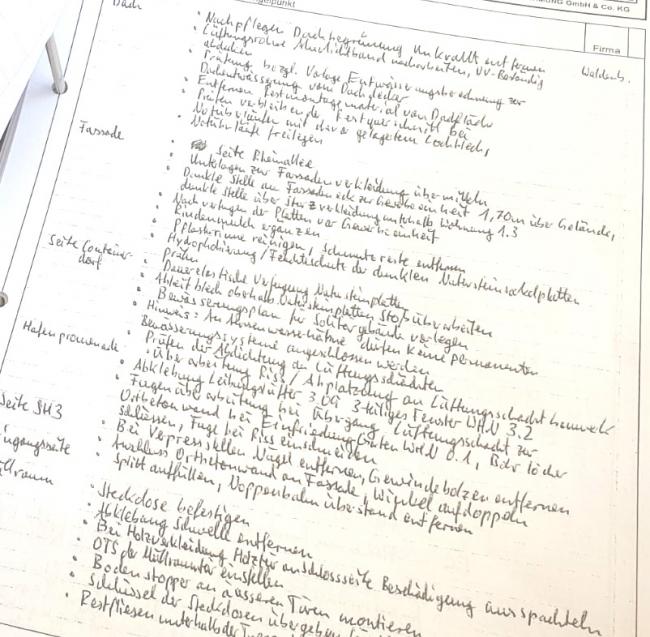 GmbH & Co. KG
Firma
Dach
Waldenb.
• Nachpflegen Dachbegrünung Unkraut entfernen
• Lüftungsrohre Multidichtband nacharbeiten, UV-Beständig
abdichten
• Prüfung bezgl. Vorlage Entwässerungsberechnung zur
Dachentwässerung vom Dachdecker
• Entfernen Restmontagematerial von Dachfläche
• Prüfen verbleibender Restquerschnitt bei
Notüberläufen mit davor gelagertem Lochblech,
Notüberläufe freilegen
Fassade
• Seite Rheinallee
• Unterlagen zur Fassadenverkleidung übermitteln
• Dunkle Stelle an Fassadeneck zur Gewerbeeinheit 1,70m über Gelände,
dunkle Stelle über Sturzverkleidung unterhalb Wohnung 1.3
• Nachverfugen der Platten vor Gewerbeeinheit
• Rindenmulch ergänzen
• Pflasterrinne reinigen, Schmutzreste entfernen
• Hydrophobierung / Feuchteschutz der dunklen Natursteinsockelplatten
prüfen
Seite Container-
dorf
• Dauerelastische Verfugung Natursteinplatten
• Ableitblech oberhalb Natursteinplatten Stoß überarbeiten
• Bewässerungsplan für Solitärgebäude vorlegen
• Hinweis: An Aussenwasserhähne dürfen keine permanenten
Bewässerungssysteme angeschlossen werden
Hafenpromenade
• Prüfen der Abdichtung der Lüftungsschächte
• Überarbeitung Riss / Abplatzung an Lüftungsschachtbauwerk
• Abklebung Leibungsgitter 3.OG 3-teiliges Fenster WHN 3.2
• Fugenüberarbeitung bei Übergang Lüftungsschacht zur
Ortbetonwand bei Einfriedung Garten WHN 0.1, Bohrlöcher
schliessen, Fuge bei Riss einschneiden
Seite SH3
• Bei Verpressstellen Nägel entfernen, Gewindebolzen entfernen
• Anschluss Ortbetonwand an Fassade, Winkel aufdoppeln
Zugangsseite
• Splitt auffüllen, Noppenbahnüberstand entfernen
Müllraum
• Steckdose befestigen
• Abklebung Schwelle entfernen
• Bei Holzverkleidung Holztür anschlossseite Beschädigung ausspachteln
• OTS der Mülltraumtür einstellen
• Bodenstopper an äusseren Türen montieren
• Schlüssel der Steckdosen übergeben
• Restfliesen unterhalb der